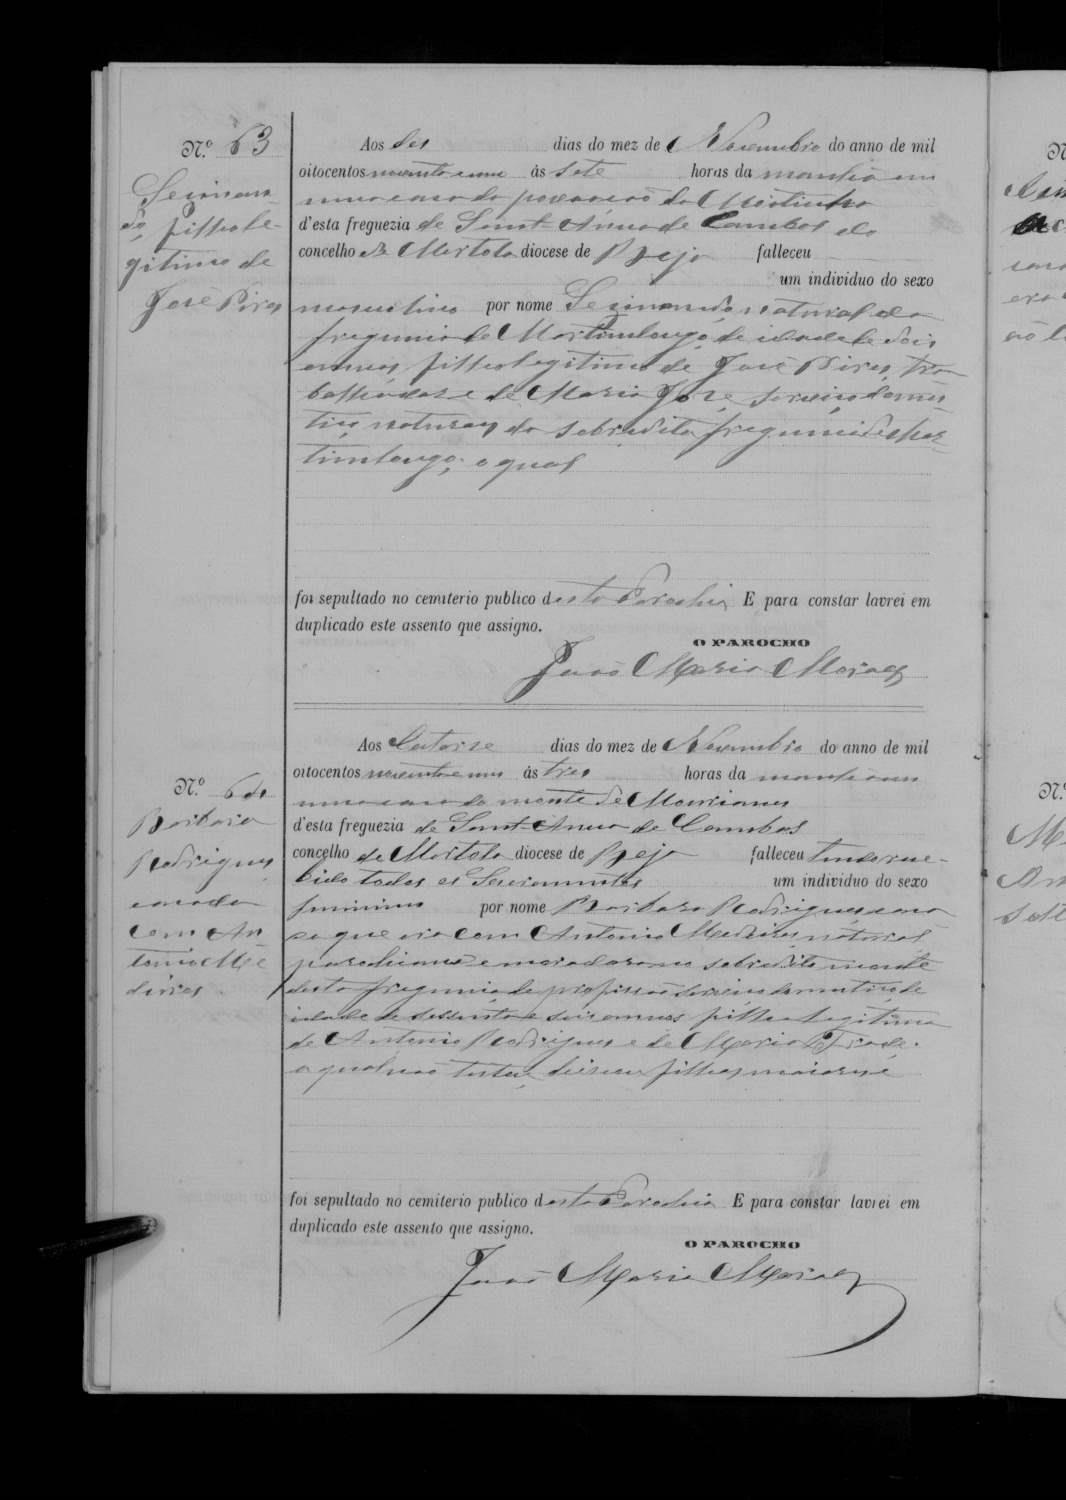 N.º 63
Sesinan
do, filho le-
gitimo de
José Pires
Aos des dias do mez de Novembro do anno de mil
oitocentos noventa e um ás sete horas da manhã em
uma casa da povoação da
d'esta freguezia de Sant'Anna de Cambas do
concelho de Mertola diocese de Beja falleceu
um individuo do sexo
masculino por nome Sesinando, natural da
freguezia de Martimlongo, de idade de dois
annos, filho legitimo de José Pires, tra-
balhador e de Maria José, serviço domes-
tico, naturaes da sobredita freguezia de Mar-
timlongo; o qual
foi sepultado no cemiterio publico desta Parochia E para constar lavrei em
duplicado este assento que assigno.
O PAROCHO
João Maria Moraes
N.º 64
Barbara
Rodrigues,
casada
com An
tonio Me
deiros
Aos Catorze dias do mez de Novembro do anno de mil
oitocentos noventa e um ás tres horas da manhã em
uma casa do monte de
d'esta freguezia de Sant'Anna de Cambas
concelho de Mertola diocese de Beja falleceu tendo rece-
bido todos os Sacramentos um individuo do sexo
feminino por nome Barbara Rodrigues, casa
da que era com Antonio Medeiros, natural,
parochiana e moradora no sobredito monte
desta freguezia, de profissão serviço domestico, de
idade de sessenta e seis annos filha legitima
de Antonio Rodrigues e de Maria
a qual não testou, deixou filhos maiores e
foi sepultado no cemiterio publico desta Parochia E para constar lavrei em
duplicado este assento que assigno.
O PAROCHO
João Maria Moraes